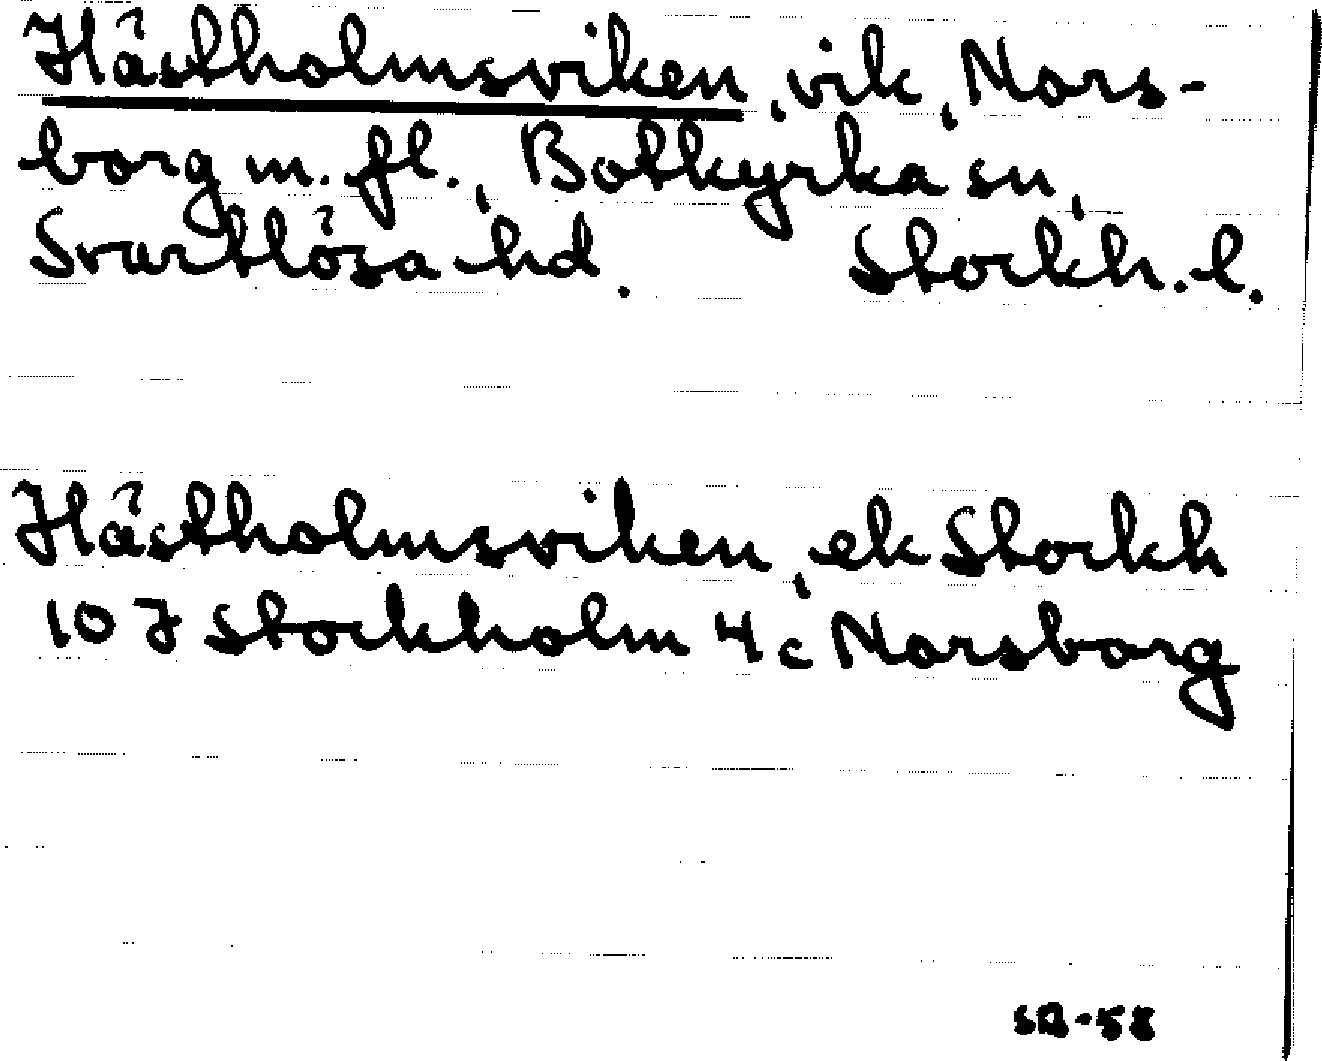 Hästholmsviken, vik, Nors-
borg m. fl., Botkyrka sn,
Svartlösa hd. Stockh. l.
Hästholmsviken, ek Stockh
10 J Stockholm 4c Norsborg
SB-58